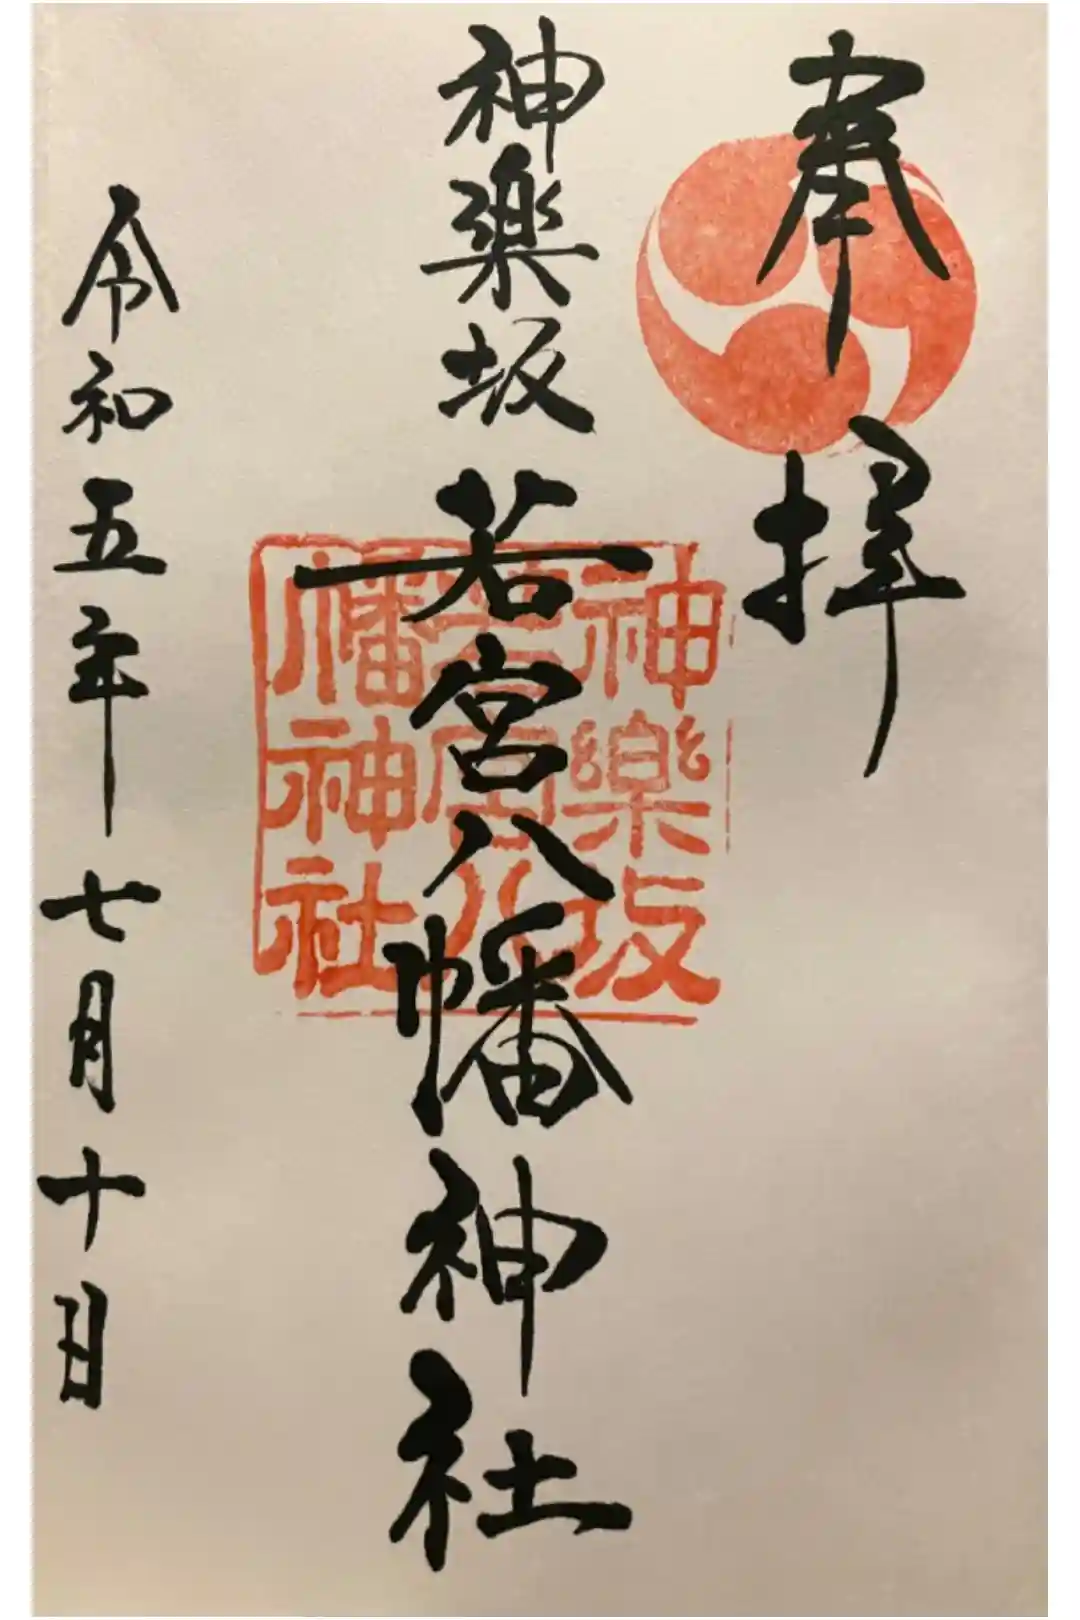 奉拝
神楽坂若宮八幡神社
神樂坂
若宮八
幡神社
令和五年七月十日